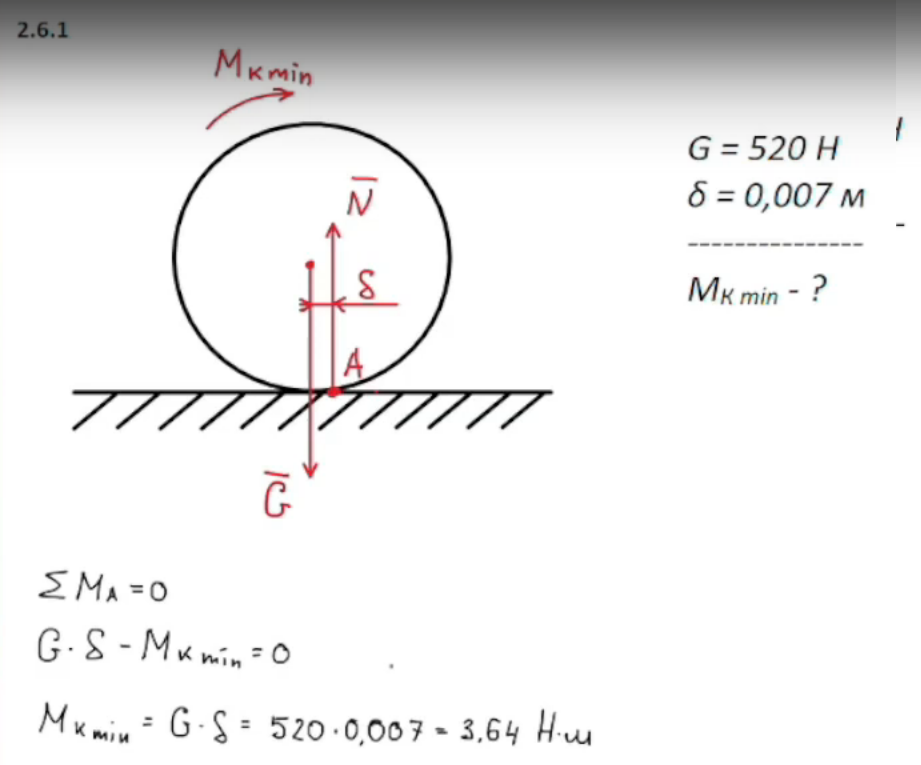 2.6.1
Mк min
N̅
δ
A
G̅
G = 520 Н
δ = 0,007 м
---------------
Mк min - ?
ΣMA = 0
G · δ - Mк min = 0
Mк min = G · δ = 520 · 0,007 = 3,64 Н·м